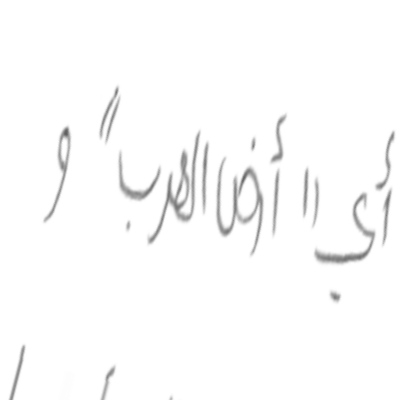 أي "أرض العرب" و